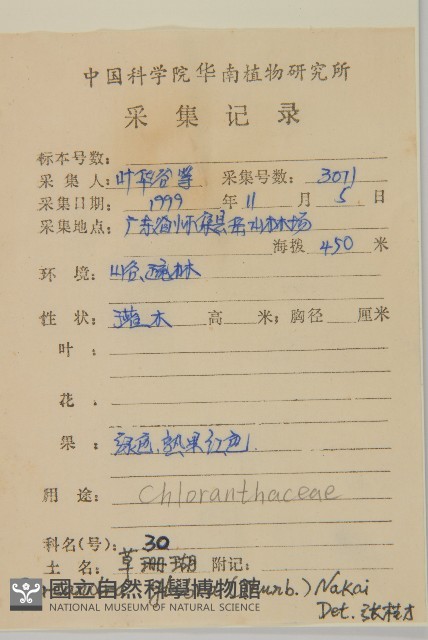 中国科学院华南植物研究所
采集记录
标本号数:
采集人:叶华谷等 采集号数:3071
采集日期:1999年11月5日
采集地点:广东省怀集县 林场
海拨 450 米
环境:山谷,疏林
性状:灌木 高 米;胸径 厘米
叶:
花.
果:绿色,熟果红色
用途:Chloranthaceae
科名(号):30
土名:草珊瑚 附记:
國立自然科學博物館
NATIONAL MUSEUM OF NATURAL SCIENCE
(Thunb.) Nakai
Det. 张桂才